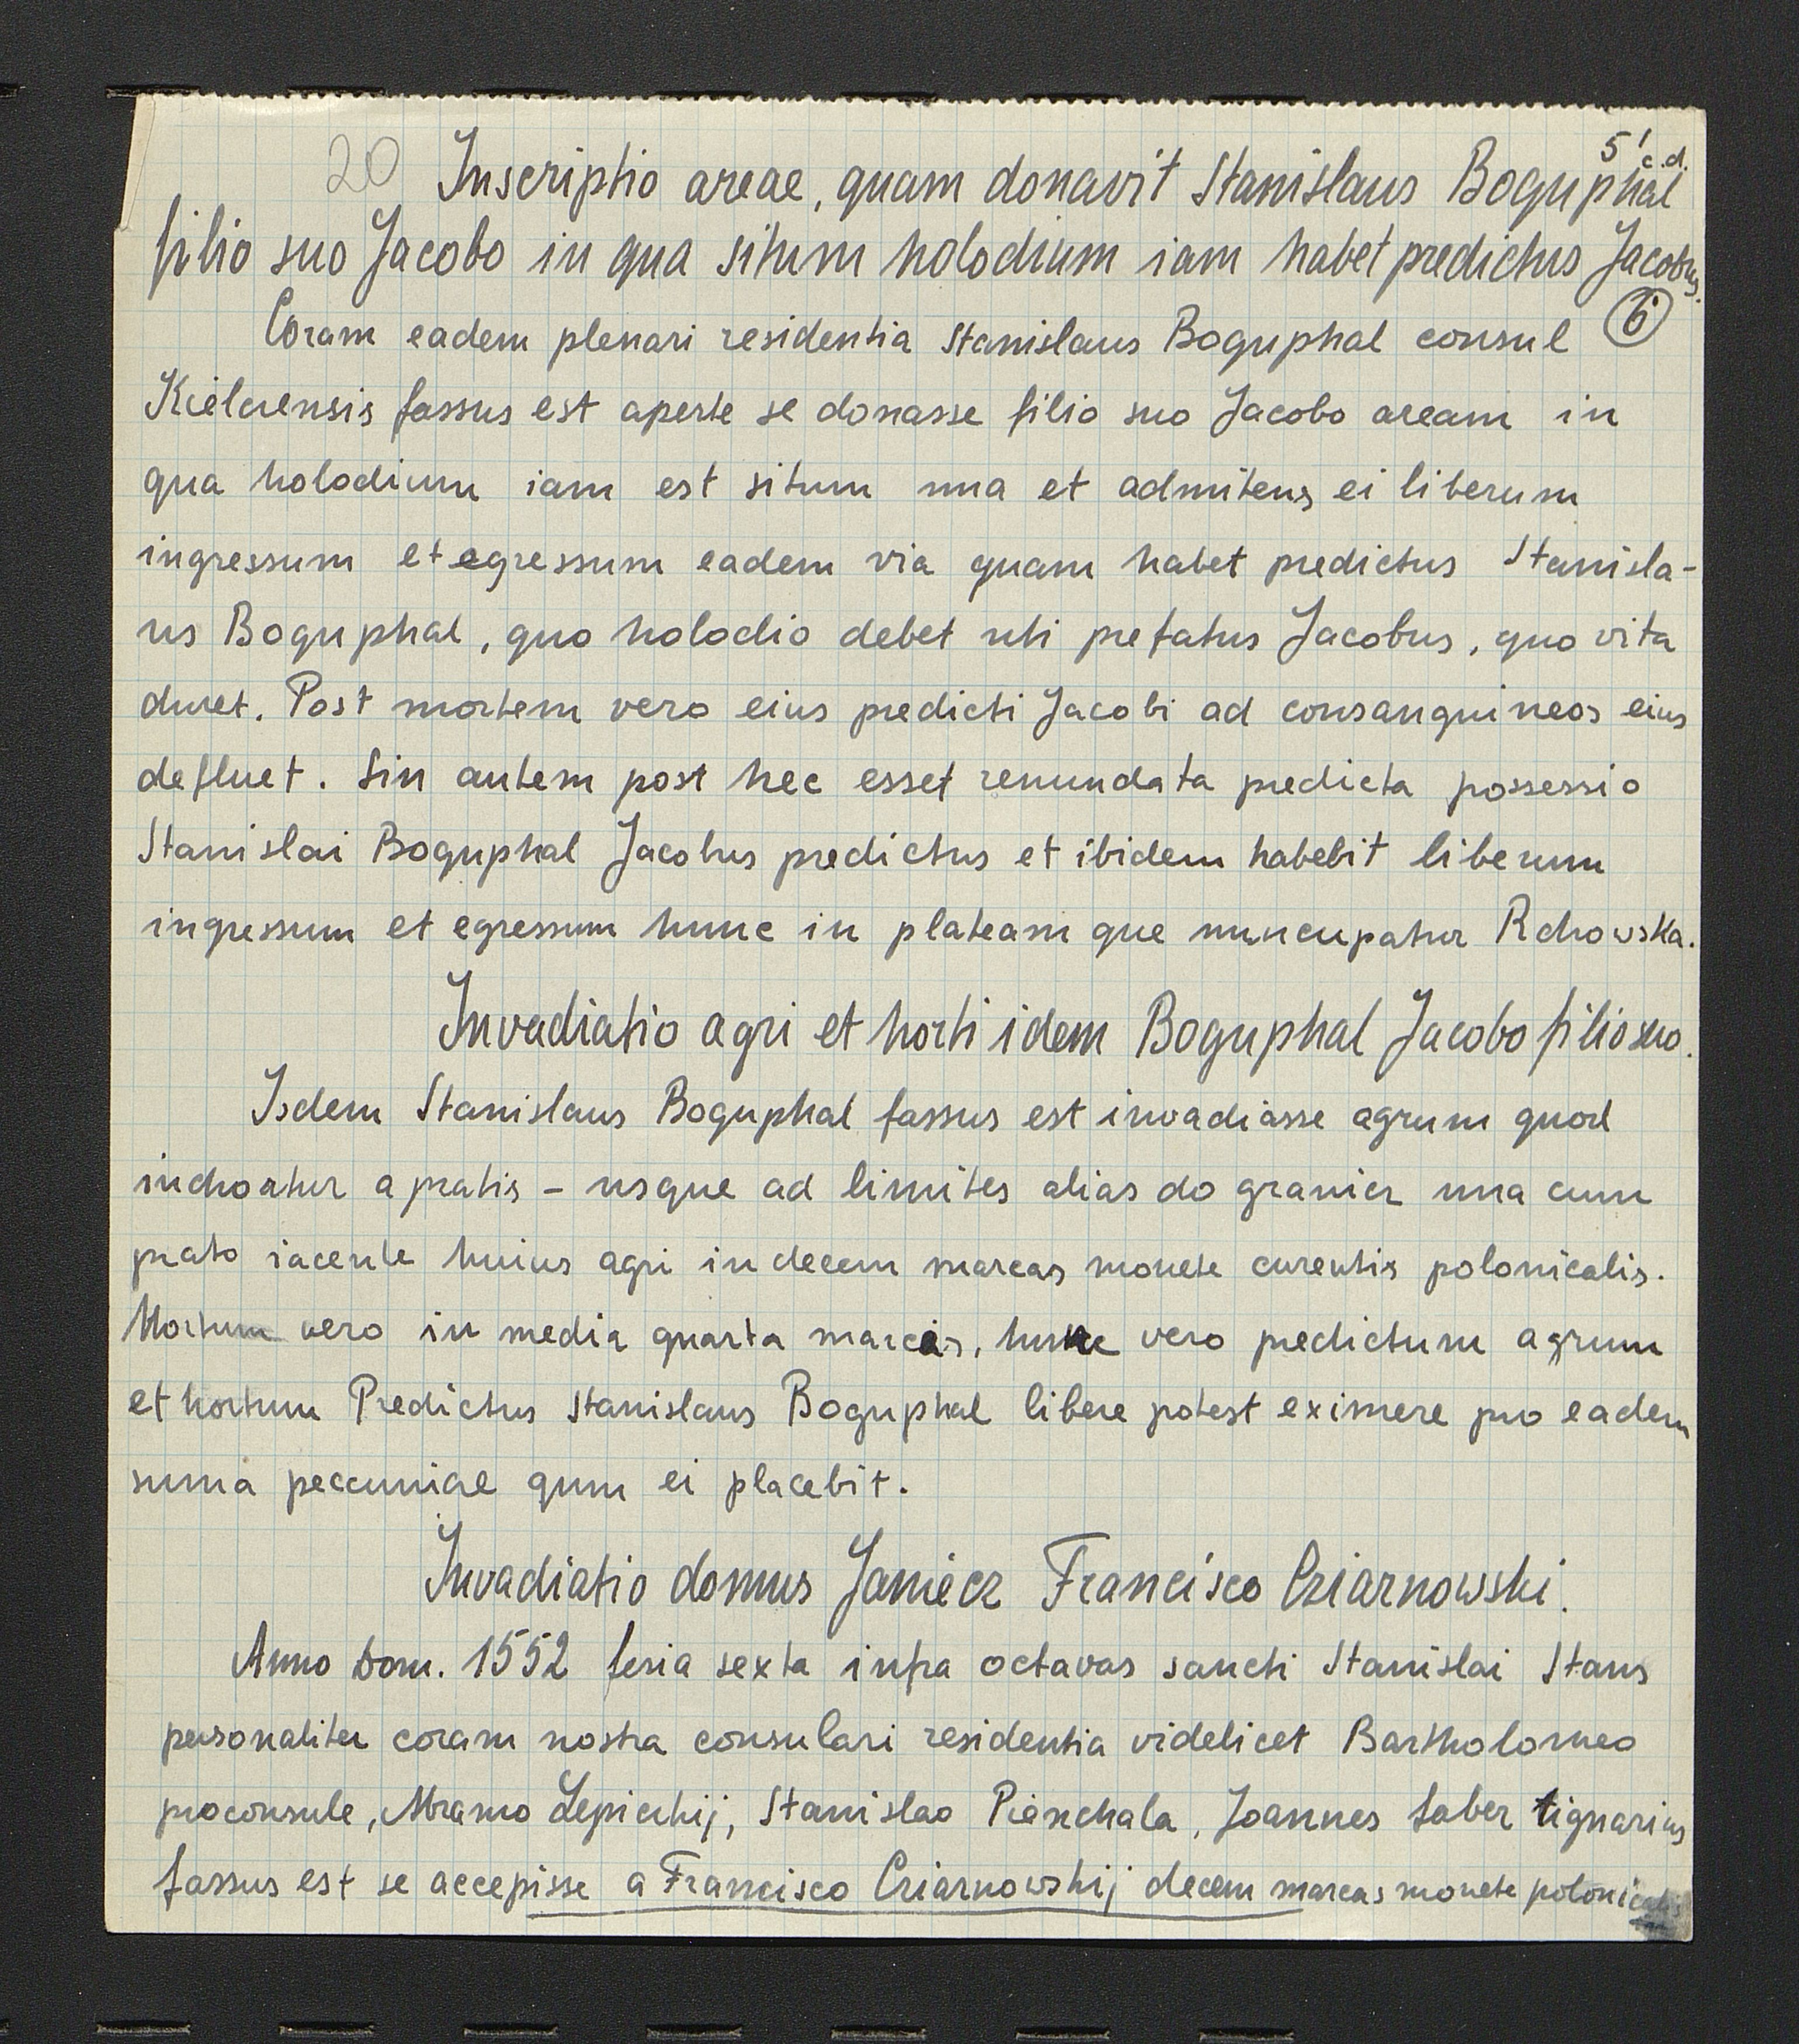 5' c.d.
20 Inscriptio areae, quam donavit Stanislaus Boguphal
filio suo Jacobo in qua situm holodium iam habet predictus Jacobus.
6
Coram eadem plenari residentia Stanislaus Boguphal consul
Kielcensis fassus est aperte se donasse filio suo Jacobo aream in
qua holodium iam est situm una et admitens ei liberum
ingressum et egressum eadem via quam habet predictus Stanisla-
us Boguphal, quo holodio debet uti prefatus Jacobus, quo vita
duret. Post mortem vero eius predicti Jacobi ad consanguineos eius
defluet. Sin autem post hec esset renundata predicta possessio
Stanislai Boguphal Jacobus predictus et ibidem habebit liberum
ingressum et egressum hunc in plateam que nuncupatur Rchowska.
Invadiatio agri et horti idem Boguphal Jacobo filio suo.
Isdem Stanislaus Boguphal fassus est invadiasse agrum quod
inchoatur a pratis - usque ad limites alias do granicz una cum
prato iacente huius agri in decem marcas monete curentis polonicalis.
Hortum vero in media quarta marcas, hunc vero predictum agrum
et hortum Predictus Stanislaus Boguphal libere potest eximere pro eadem
suma peccuniae qum ei placebit.
Invadiatio domus Janiecz Francisco Cziarnowski.
Anno Dom. 1552 feria sexta infra octavas sancti Stanislai Stans
personaliter coram nostra consulari residentia videlicet Bartholomeo
proconsule, Abramo Lepiechij, Stanislao Pienchala, Joannes faber tignarius
fassus est se accepisse a Francisco Cziarnowskij decem marcas monete polonicalis